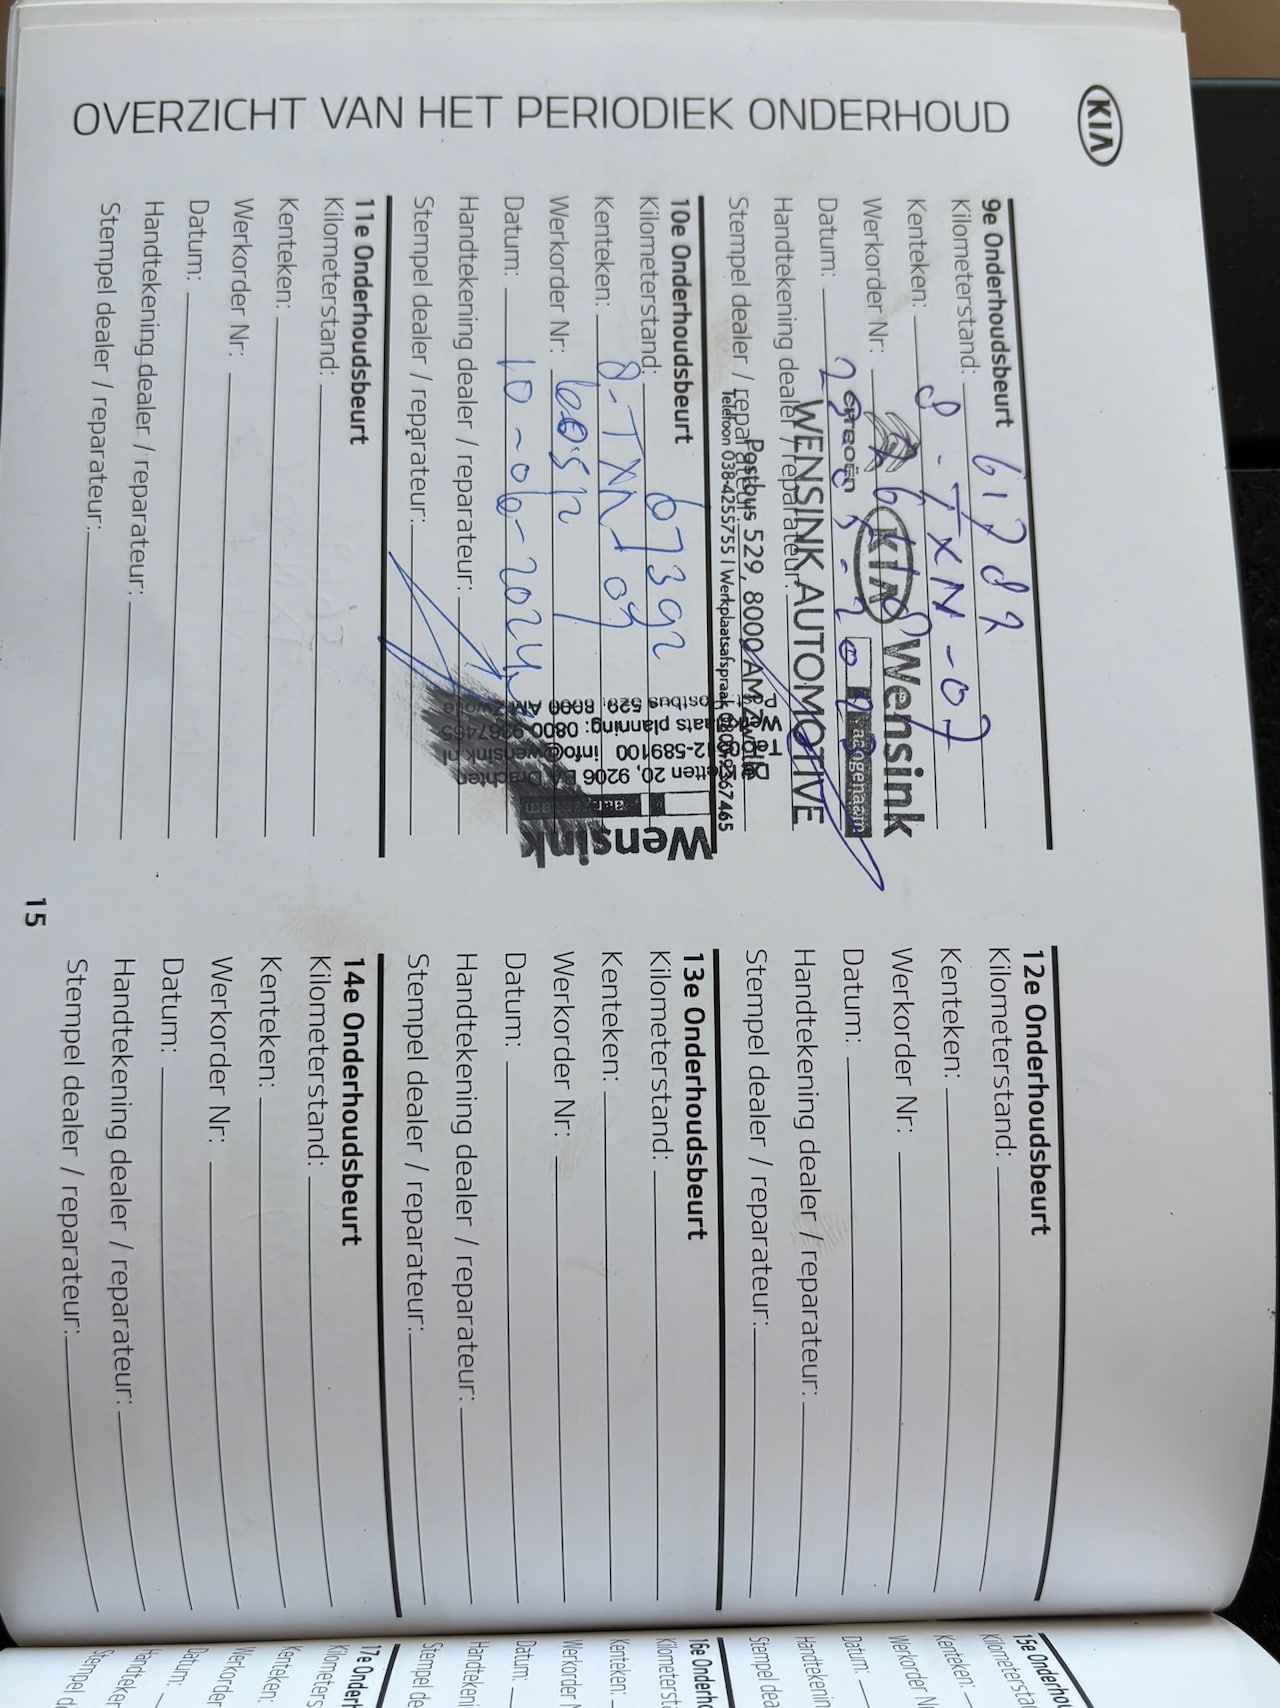 KIA
OVERZICHT VAN HET PERIODIEK ONDERHOUD
9e Onderhoudsbeurt
Kilometerstand: 61782
Kenteken: 8-TXN-07
Werkorder Nr:
Datum:
Handtekening dealer / reparateur:
Stempel dealer / reparateur:
CITROËN KIA Wensink
aangenaam
WENSINK AUTOMOTIVE
Postbus 529, 8000 AM Zwolle
Telefoon 038-4255755 | Werkplaatsafspraak 0800-9367465
10e Onderhoudsbeurt
Kilometerstand: 67392
Kenteken: 8-TXN-07
Werkorder Nr:
Datum: 10-06-2024
Handtekening dealer / reparateur:
Stempel dealer / reparateur:
Wensink
aangenaam
20, 9206 Drachten
info@wensink.nl
planning: 0800-9367465
Postbus 529, 8000 AM Zwolle
11e Onderhoudsbeurt
Kilometerstand:
Kenteken:
Werkorder Nr:
Datum:
Handtekening dealer / reparateur:
Stempel dealer / reparateur:
12e Onderhoudsbeurt
Kilometerstand:
Kenteken:
Werkorder Nr:
Datum:
Handtekening dealer / reparateur:
Stempel dealer / reparateur:
13e Onderhoudsbeurt
Kilometerstand:
Kenteken:
Werkorder Nr:
Datum:
Handtekening dealer / reparateur:
Stempel dealer / reparateur:
14e Onderhoudsbeurt
Kilometerstand:
Kenteken:
Werkorder Nr:
Datum:
Handtekening dealer / reparateur:
Stempel dealer / reparateur:
15
15e Onderho
Kilometersta
Kenteken:
Werkorder N
Datum:
Handtekenin
Stempel dea
16e Onderho
Kilometerst
Kenteken:
Werkorder N
Datum:
Handtekeni
Stempel de
17e Onderh
Kilometers
Kenteken:
Werkorder
Datum:
Handteken
Stempel d